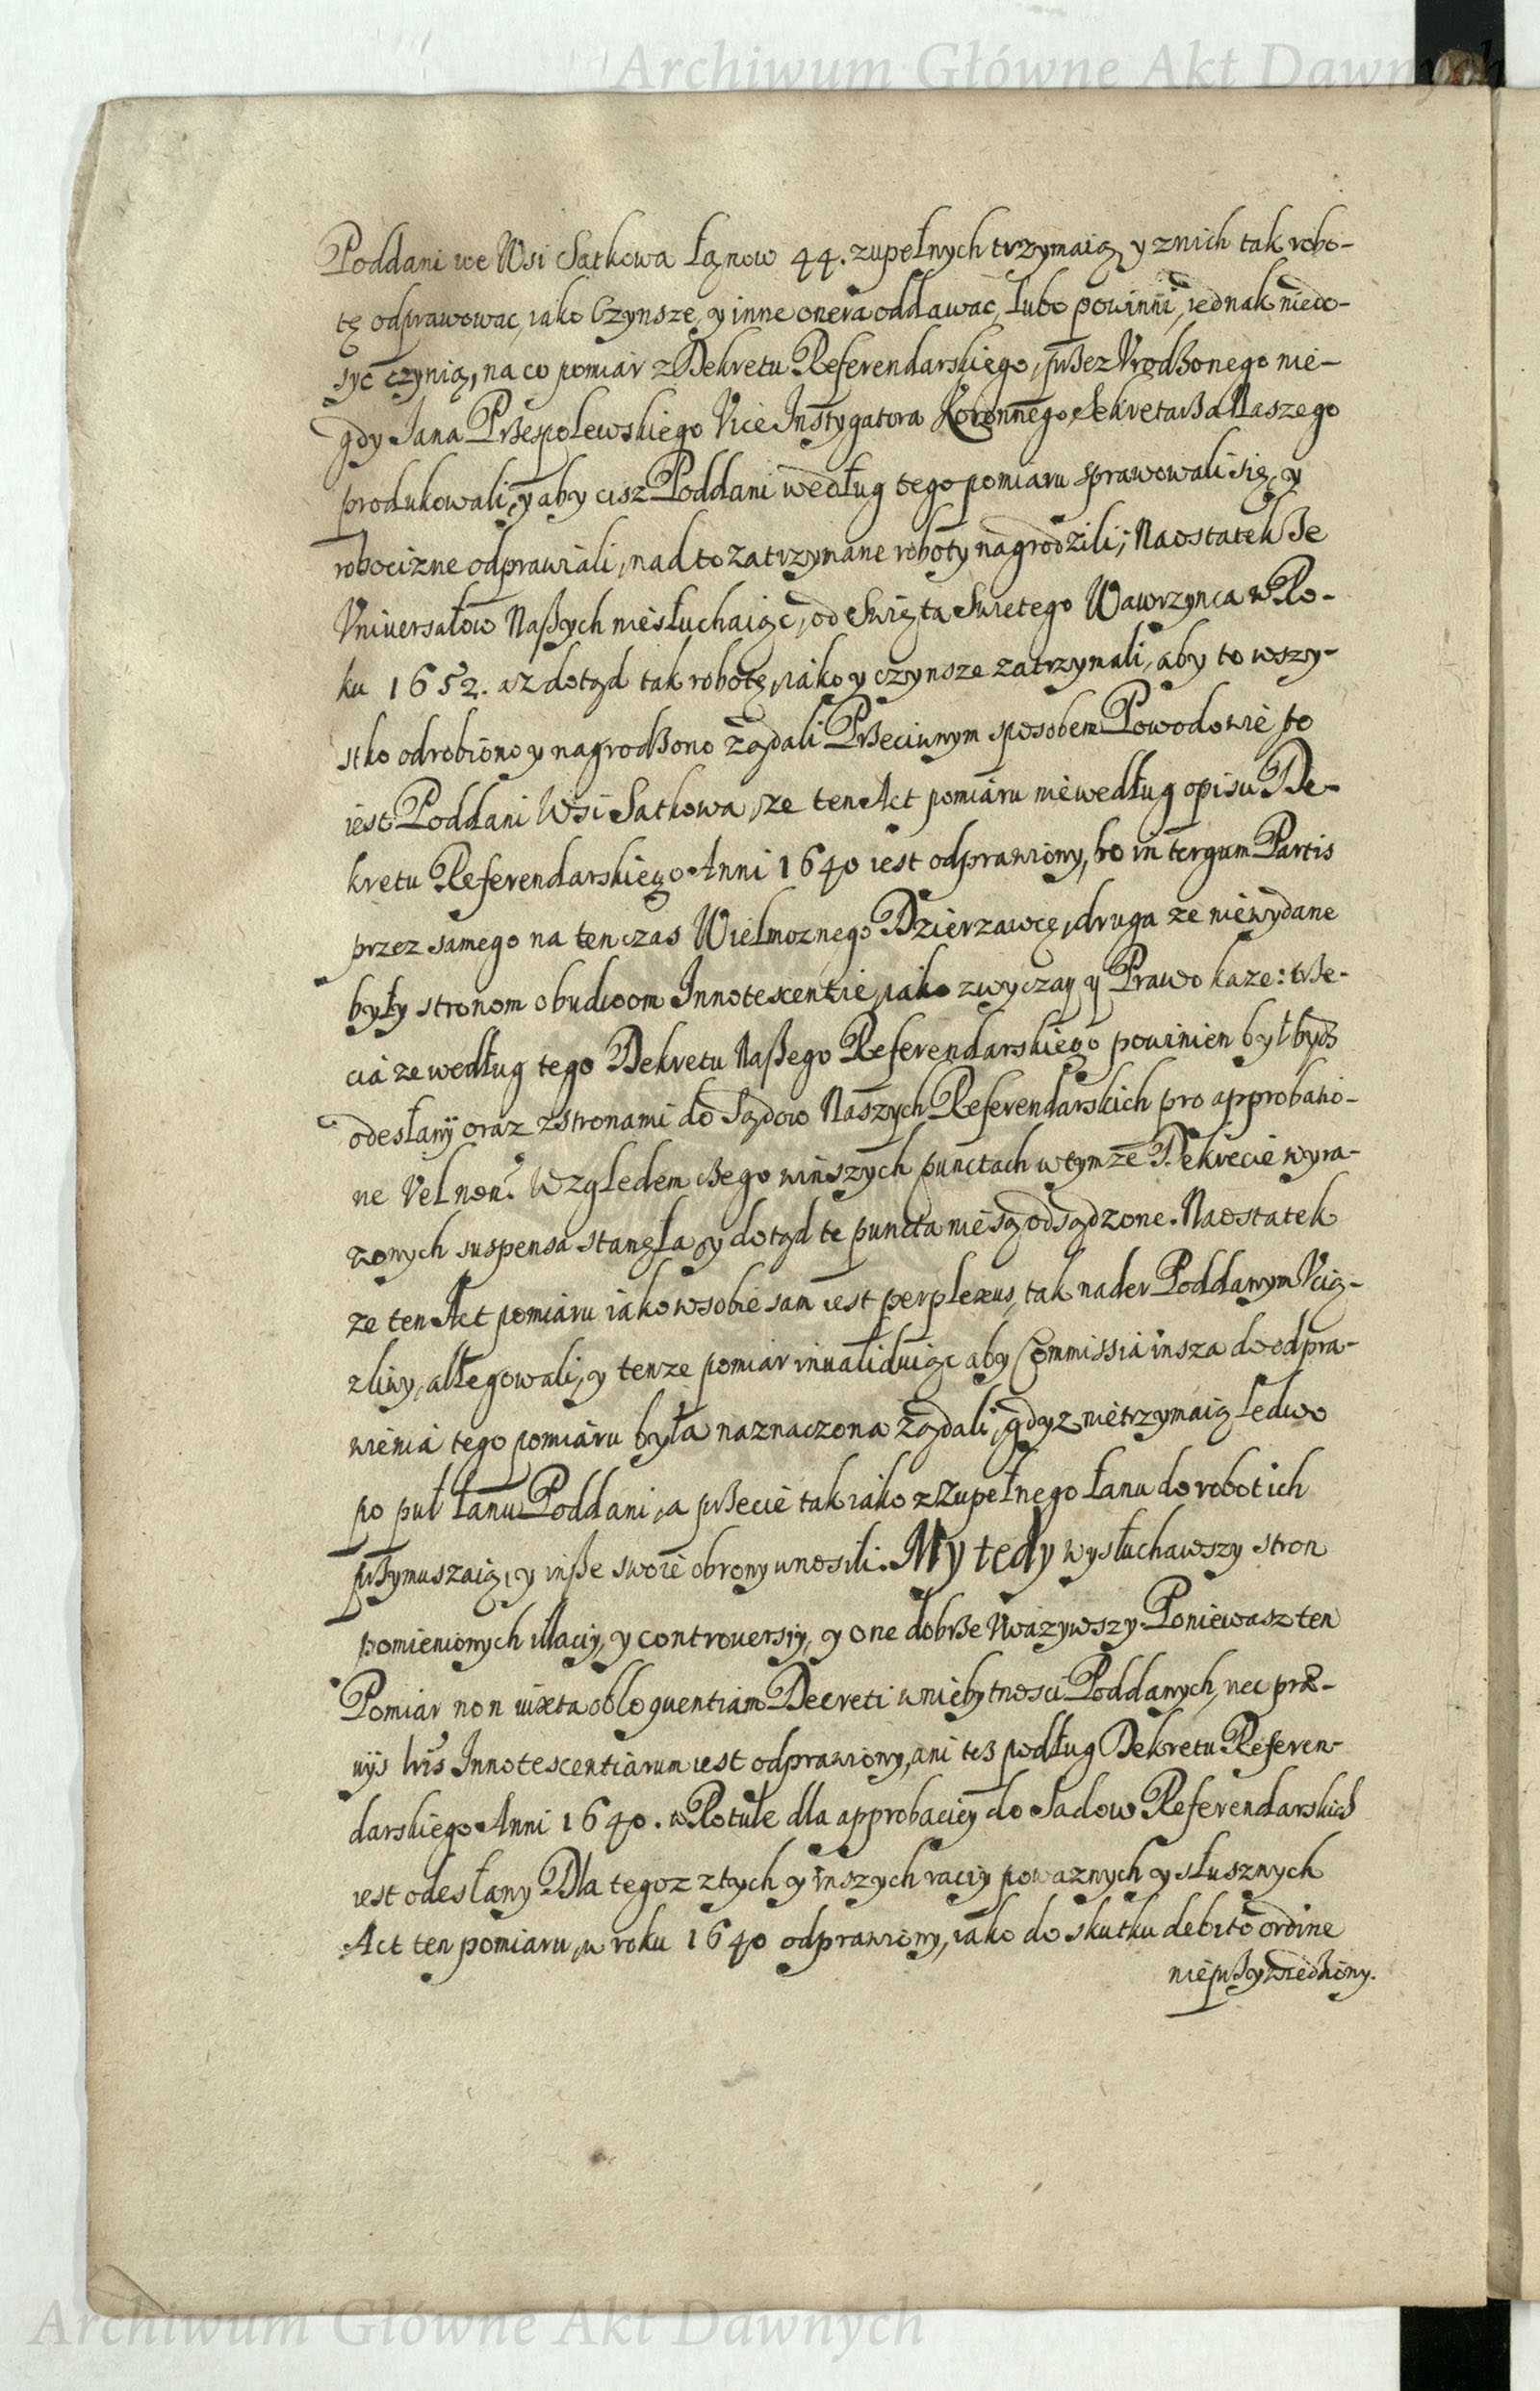 Archiwum Główne Akt Dawnych
Poddani we Wsi Satkowa Łanow 44. zupełnych trzymaią y znich tak robo-
tę odprawowac, iako Czynsze, y inne onera oddawac, lubo powinni, iednak niedo-
syć czynią, na co pomiar z Dekretu Referendarskiego, przez Vrodzonego nie-
gdy Jana Przespolewskiego Vice Instygatora Koronnego Sekretarza Naszego
produkowali, y aby cisz Poddani według tego pomiaru sprawowali się, y
robocizne odprawiali, nad to zatrzymane roboty nagrodzili; Naostatek że
Vniversałow Naszych niesłuchaiąc, od Swięta Swietego Wawrzynca w Ro-
ku 1652. aż dotąd tak robotę, iako y czynsze zatrzymali, aby to wszy-
stko odrobiono y nagrodzono żądali Przeciwnym sposobem Powodowie to
iest Poddani Wsi Satkowa, ze ten Act pomiaru niewedług opisu De-
kretu Referendarskiego Anni 1640 iest odprawiony, bo in tergum Partis
przez samego na ten czas Wielmoznego Dzierzawcę, druga ze niewydane
były stronom obudwom Innotescentie, iako zwyczay y Prawo kaze: trze-
cia ze według tego Dekretu Naszego Referendarskiego powinien był bydz
odesłany oraz z stronami do Sądow Naszych Referendarskich pro approbatio-
ne vel non. Względem czego winszych punctach w tymze Dekrecie wyra-
zonych suspensa stanęła, y dotąd te puncta nie są odsądzone. Naostatek
ze ten Act pomiaru iako w sobie sam iest perplexus, tak nader Poddanym Vcią-
zliwy, allegowali, y tenze pomiar inualiduiąc aby Commissia insza do odpra-
wienia tego pomiaru była naznaczona żądali, gdyz nietrzymaią ledwo
po puł łanu Poddani, a przecie tak iako z Zupełnego łanu do robot ich
przymuszaią, y insze swoie obrony wnosili. My tedy wysłuchawszy stron
pomienionych illaciy, y controuersiy, y one dobrze Vwazywszy. Poniewasz ten
Pomiar non iuxta obloquentiam Decreti w niebytnosci Poddanych, nec præ-
uijs lris Innotescentiarum iest odprawiony, ani tez podług Dekretu Referen-
darskiego Anni 1640. w Rotule dla approbaciey do Sadow Referendarskich
iest odesłany Dla tegoz z tych y inszych raciy powaznych y słusznych
Act ten pomiaru, w roku 1640 odprawiony, iako do skutku debito ordine
nieprzywiedziony.
Archiwum Główne Akt Dawnych